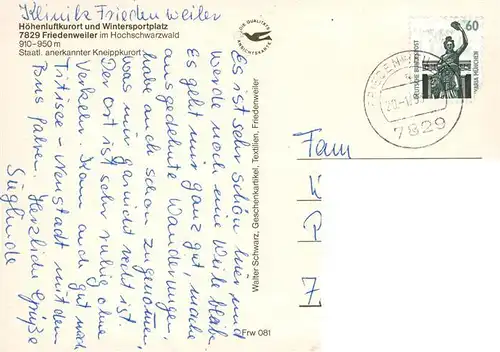 Klinik Friedenweiler
Höhenluftkurort und Wintersportplatz
7829 Friedenweiler im Hochschwarzwald
910-950 m
Staatl. anerkannter Kneippkurort
DIE QUALITÄTS
Es ist sehr schön hier und
werde noch eine Weile bleiben.
Es geht mir ganz gut, mache
ausgedehnte Wanderungen,
habe auch schon zugenommen,
was mir garnicht recht ist.
Der Ort ist sehr ruhig ohne
Verkehr. Kann auch gut nach
Titisee-Neustadt mit dem
Bus fahren. Herzliche Grüße
Sieglinde
Walter Schwarz, Geschenkartikel, Textilien, Friedenweiler
Frw 081
60
DEUTSCHE BUNDESPOST
BAVARIA MÜNCHEN
7829
Fam
7